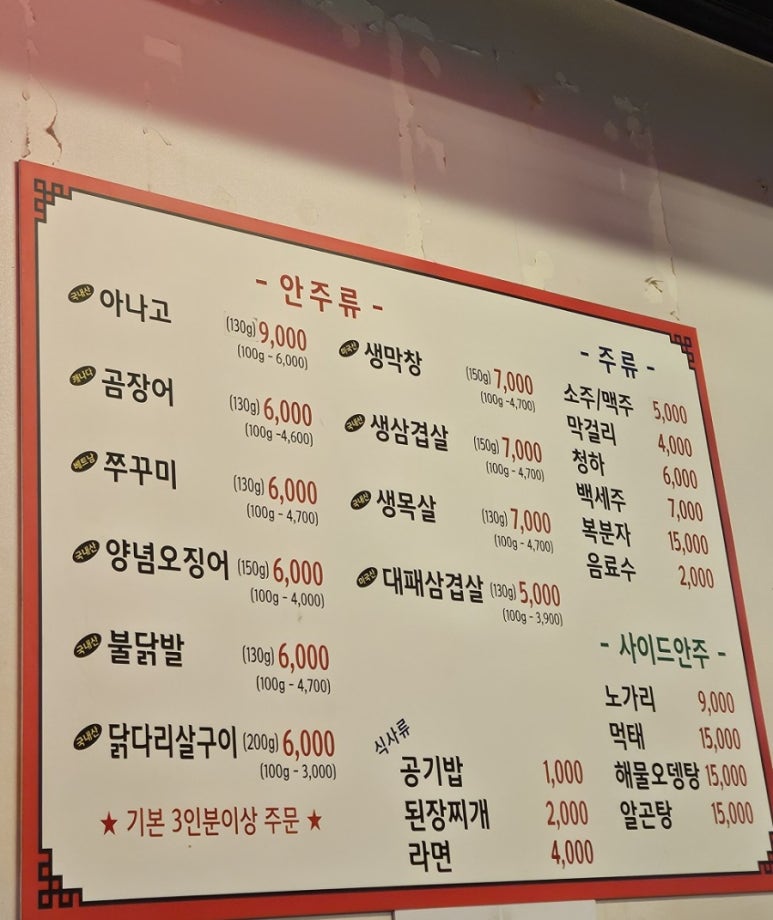 - 안주류 -
국내산 아나고 (130g) 9,000
(100g - 6,000)
캐나다 곰장어 (130g) 6,000
(100g -4,600)
베트남 쭈꾸미 (130g) 6,000
(100g - 4,700)
국내산 양념오징어 (150g) 6,000
(100g - 4,000)
국내산 불닭발 (130g) 6,000
(100g - 4,700)
국내산 닭다리살구이 (200g) 6,000
(100g - 3,000)
★ 기본 3인분이상 주문 ★
미국산 생막창 (150g) 7,000
(100g -4,700)
국내산 생삼겹살 (150g) 7,000
(100g - 4,700)
국내산 생목살 (130g) 7,000
(100g - 4,700)
미국산 대패삼겹살 (130g) 5,000
(100g - 3,900)
식사류
공기밥 1,000
된장찌개 2,000
라면 4,000
- 주류 -
소주/맥주 5,000
막걸리 4,000
청하 6,000
백세주 7,000
복분자 15,000
음료수 2,000
- 사이드안주 -
노가리 9,000
먹태 15,000
해물오뎅탕 15,000
알곤탕 15,000